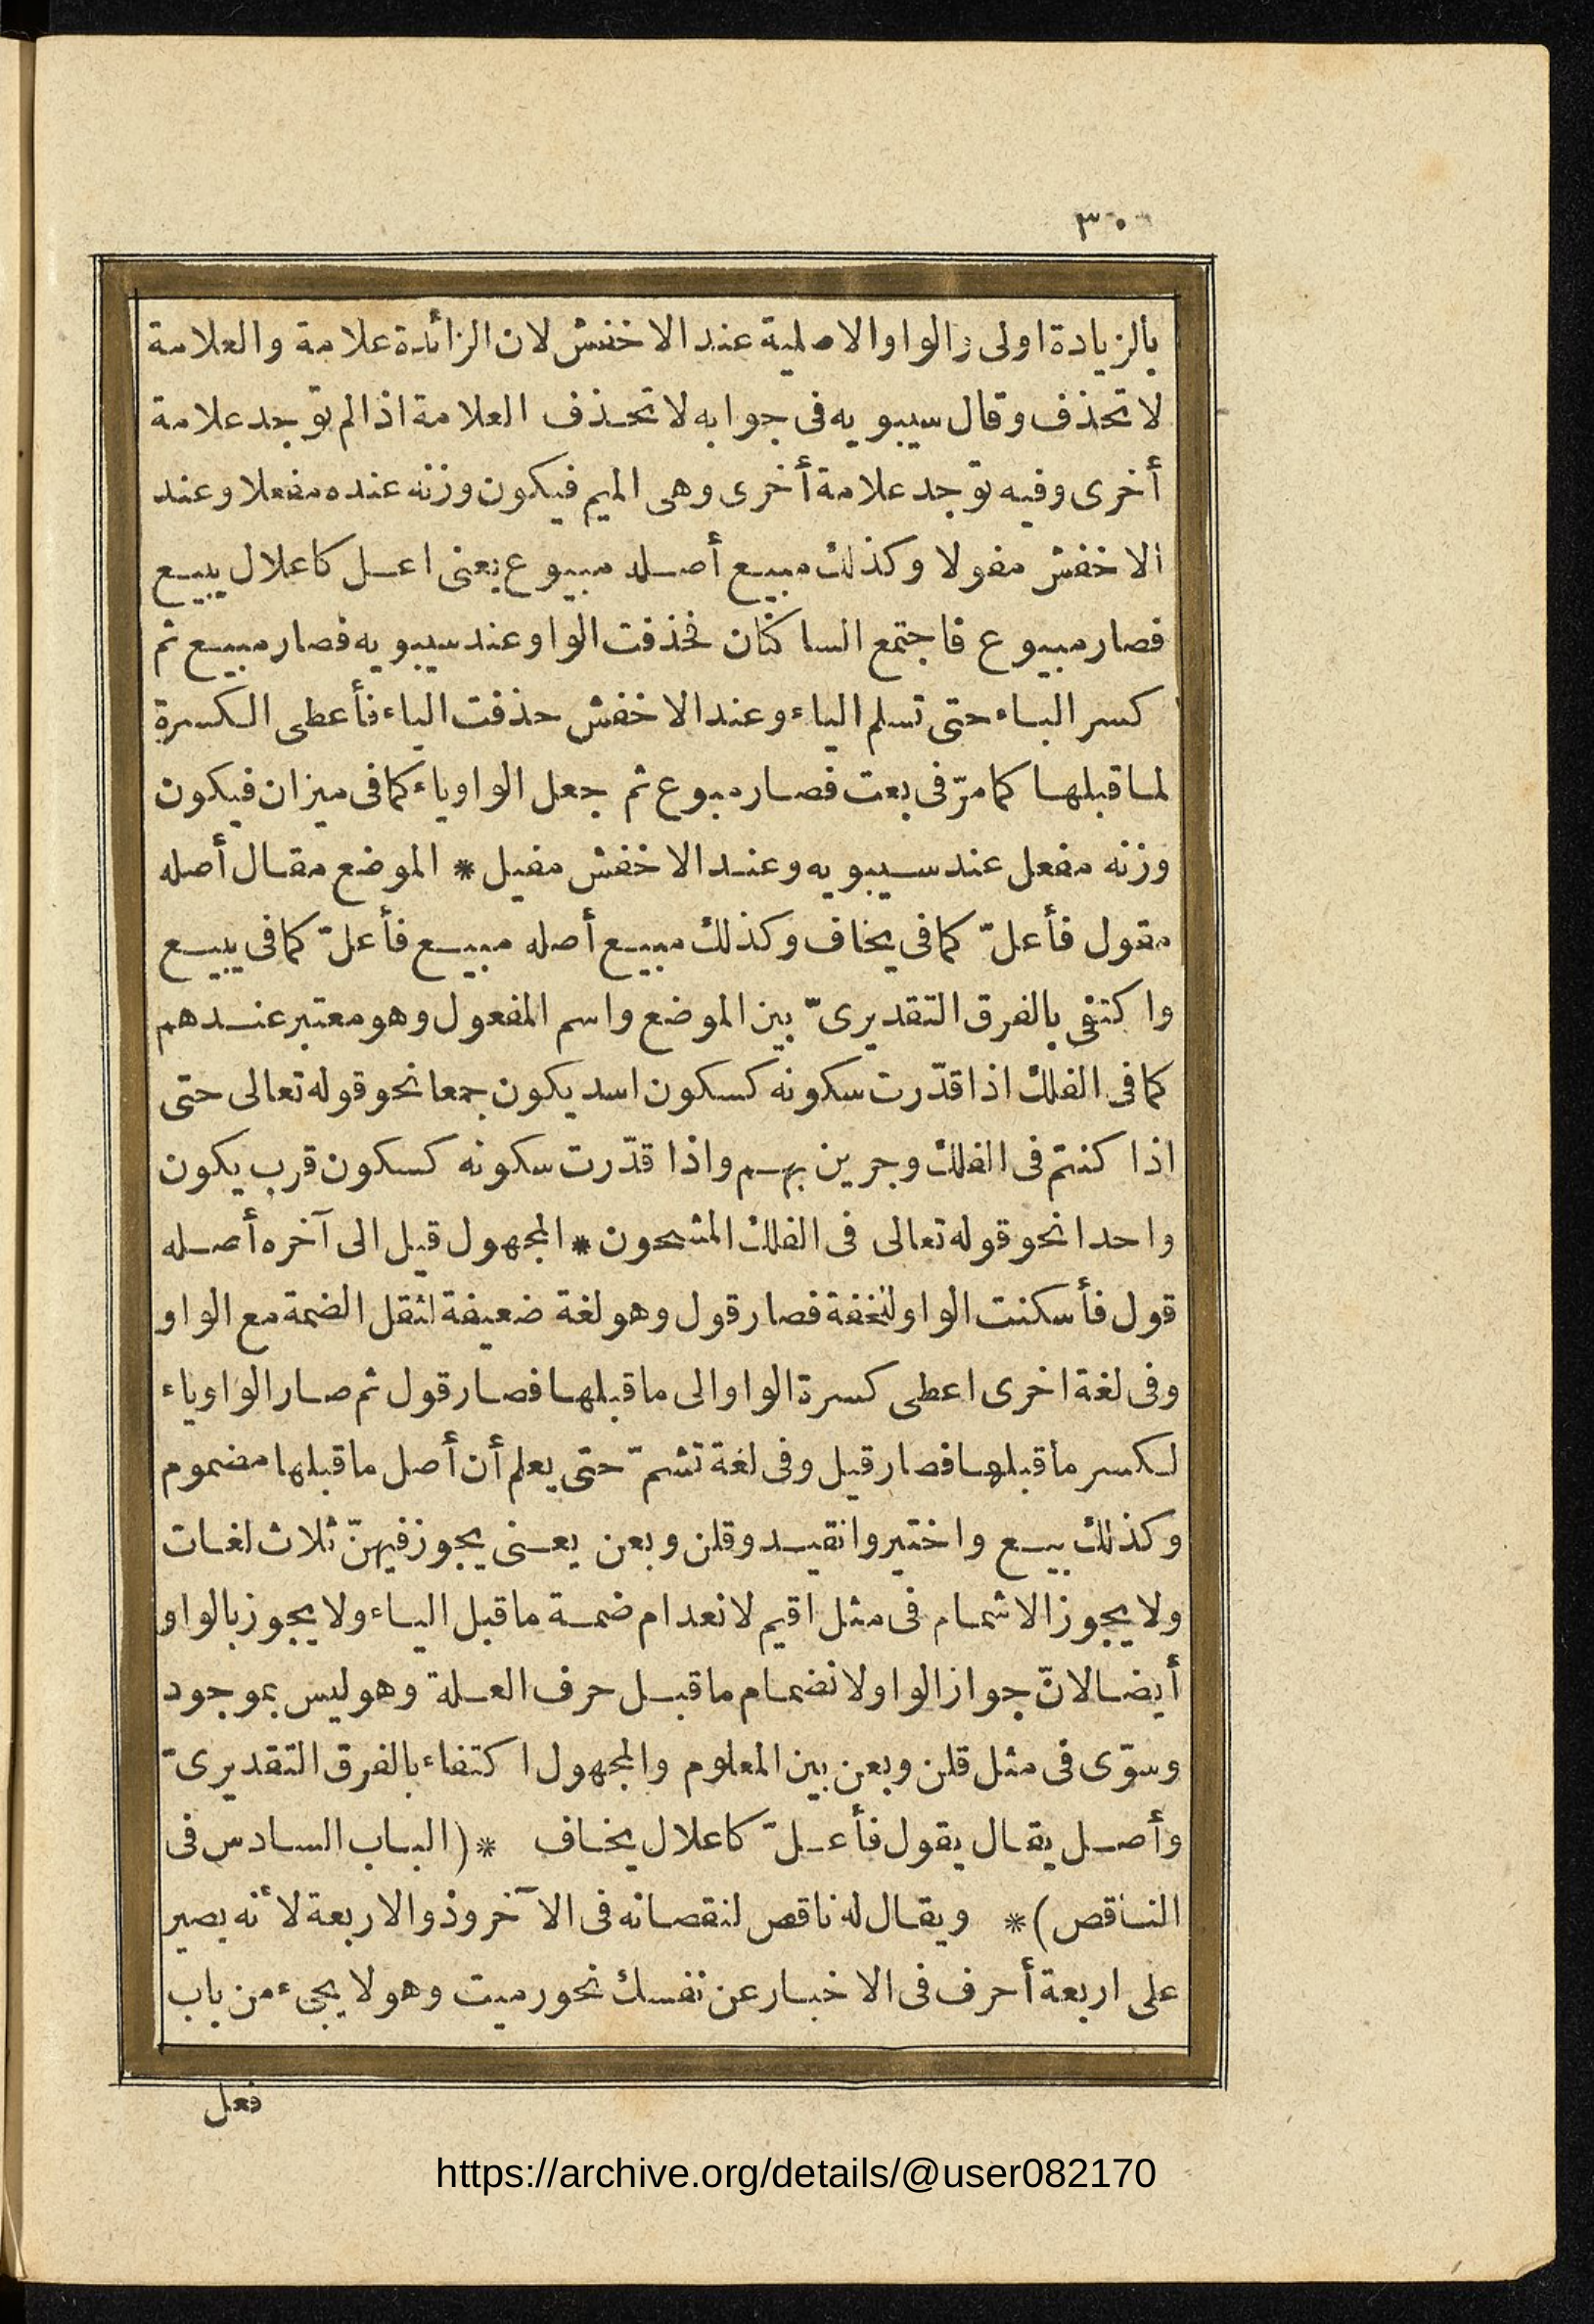 ٣٠
بالزيادة اولى والواو الاصلية عند الاخفش لان الزائدة علامة والعلامة
لا تحذف وقال سيبويه فى جوابه لا تحذف العلامة اذا لم توجد علامة
أخرى وفيه توجد علامة أخرى وهى الميم فيكون وزنه عنده مفعلا وعند
الاخفش مفولا وكذلك مبيع أصله مبيوع يعنى اعل كاعلال يبيع
فصار مبيوع فاجتمع الساكنان فحذفت الواو عند سيبويه فصار مبيع ثم
كسر الباء حتى تسلم الياء وعند الاخفش حذفت الياء فأعطى الكسرة
لما قبلها كما مرّ فى بعت فصار مبوع ثم جعل الواو ياء كما فى ميزان فيكون
وزنه مفعل عند سيبويه وعند الاخفش مفيل * الموضع مقال أصله
مقول فأعلّ كما فى يخاف وكذلك مبيع أصله مبيع فأعلّ كما فى يبيع
واكتفى بالفرق التقديرىّ بين الموضع واسم المفعول وهو معتبر عندهم
كما فى الفلك اذا قدّرت سكونه كسكون اسد يكون جمعا نحو قوله تعالى حتى
اذا كنتم فى الفلك وجرين بهم واذا قدّرت سكونه كسكون قرب يكون
واحدا نحو قوله تعالى فى الفلك المشحون * المجهول قيل الى آخره أصله
قول فأسكنت الواو للخفة فصار قول وهو لغة ضعيفة لثقل الضمة مع الواو
وفى لغة اخرى اعطى كسرة الواو الى ما قبلها فصار قول ثم صار الواو ياء
لكسر ما قبلها فصار قيل وفى لغة تشمّ حتى يعلم أن أصل ما قبلها مضموم
وكذلك بيع واختير وانقيد وقلن وبعن يعنى يجوز فيهنّ ثلاث لغات
ولا يجوز الاشمام فى مثل اقيم لانعدام ضمة ما قبل الياء ولا يجوز بالواو
أيضا لانّ جواز الواو لانضمام ما قبل حرف العلة وهو ليس بموجود
وسوّى فى مثل قلن وبعن بين المعلوم والمجهول اكتفاء بالفرق التقديرىّ
وأصل يقال يقول فأعلّ كاعلال يخاف *(الباب السادس فى
الناقص)* ويقال له ناقص لنقصانه فى الآخر وذو الاربعة لأنه يصير
على اربعة أحرف فى الاخبار عن نفسك نحو رميت وهو لا يجىء من باب
فعل
https://archive.org/details/@user082170